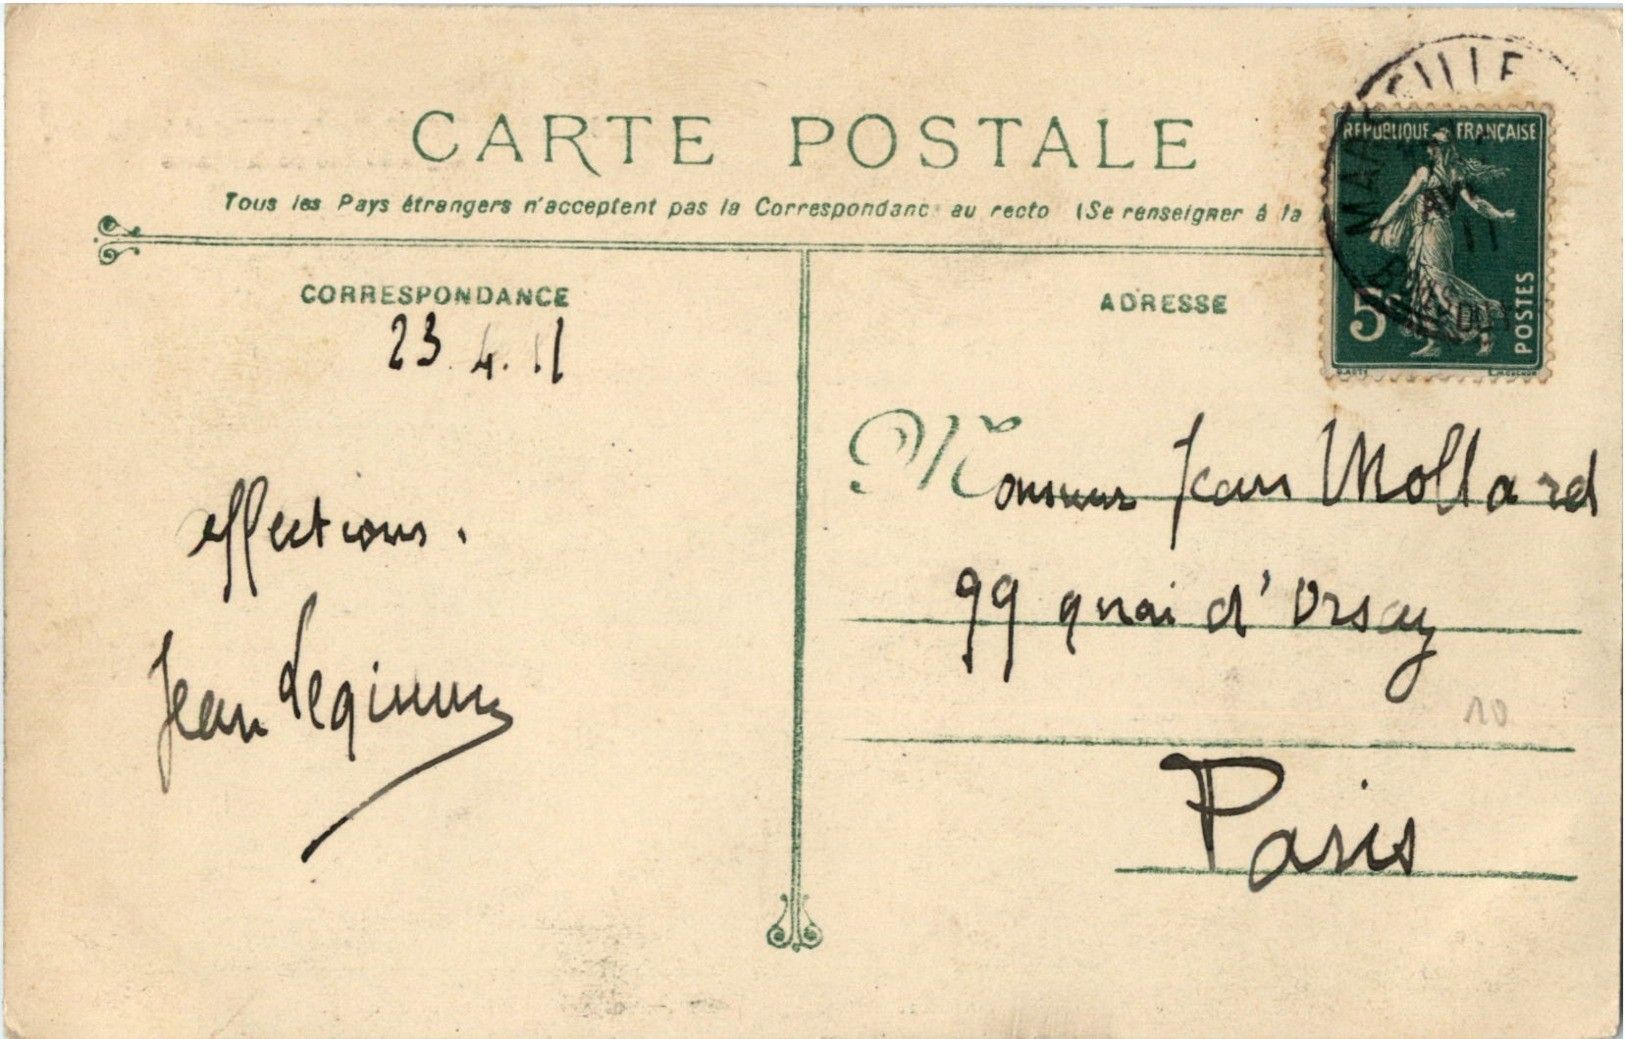 CARTE POSTALE
Tous les Pays étrangers n'acceptent pas la Correspondance au recto (Se renseigner à la
RÉPUBLIQUE FRANÇAISE
5c
POSTES
MARSEILLE
AVR
11
CORRESPONDANCE
23.4.11
affections.
Jean
ADRESSE
Monsieur Jean Mollard
99 quai d'Orsay
10
Paris